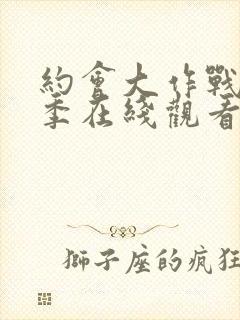 約會大作戰
季在綫觀看
獅子座的疯狂